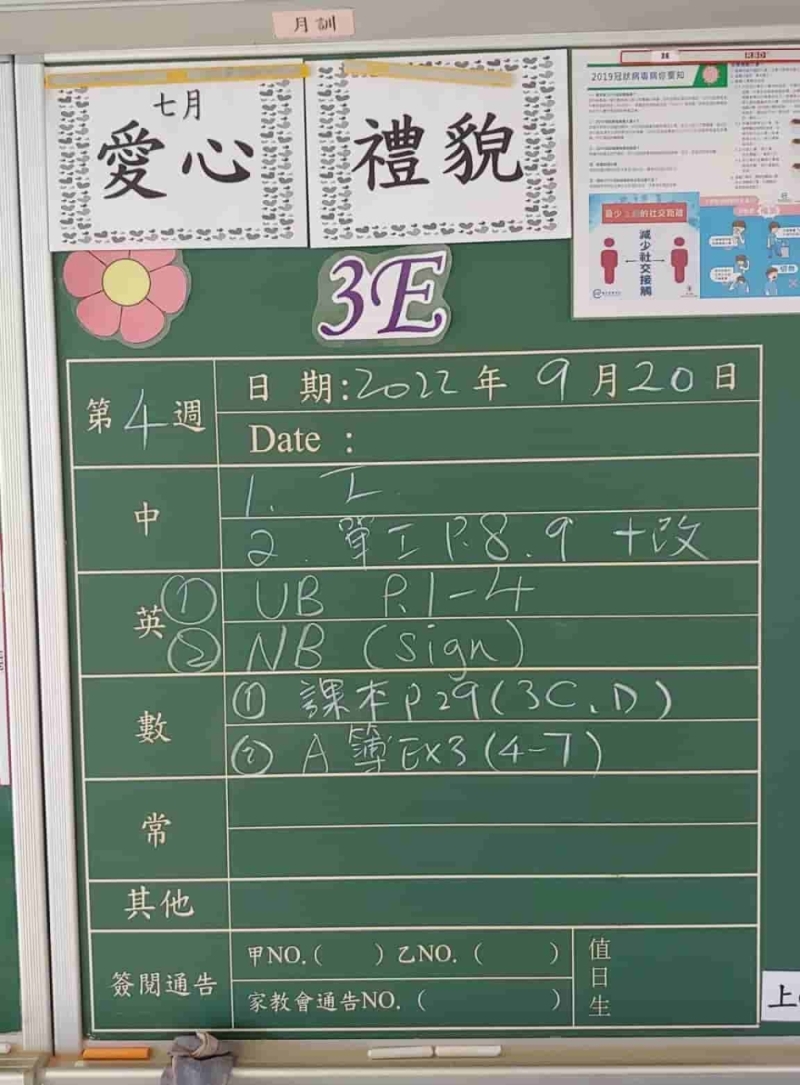 月訓
七月
愛心
禮貌
2019冠狀病毒病你要知
減少社交接觸
3E
第4週
日期:2022年9月20日
Date :
中
1. 工
2. 單工 P.8.9 +改
英
① UB P.1-4
② NB (sign)
數
① 課本P29(3C、D)
② A簿Ex3(4-7)
常
其他
簽閱通告
甲NO.( )乙NO.( )
家教會通告NO.( )
值日生
上